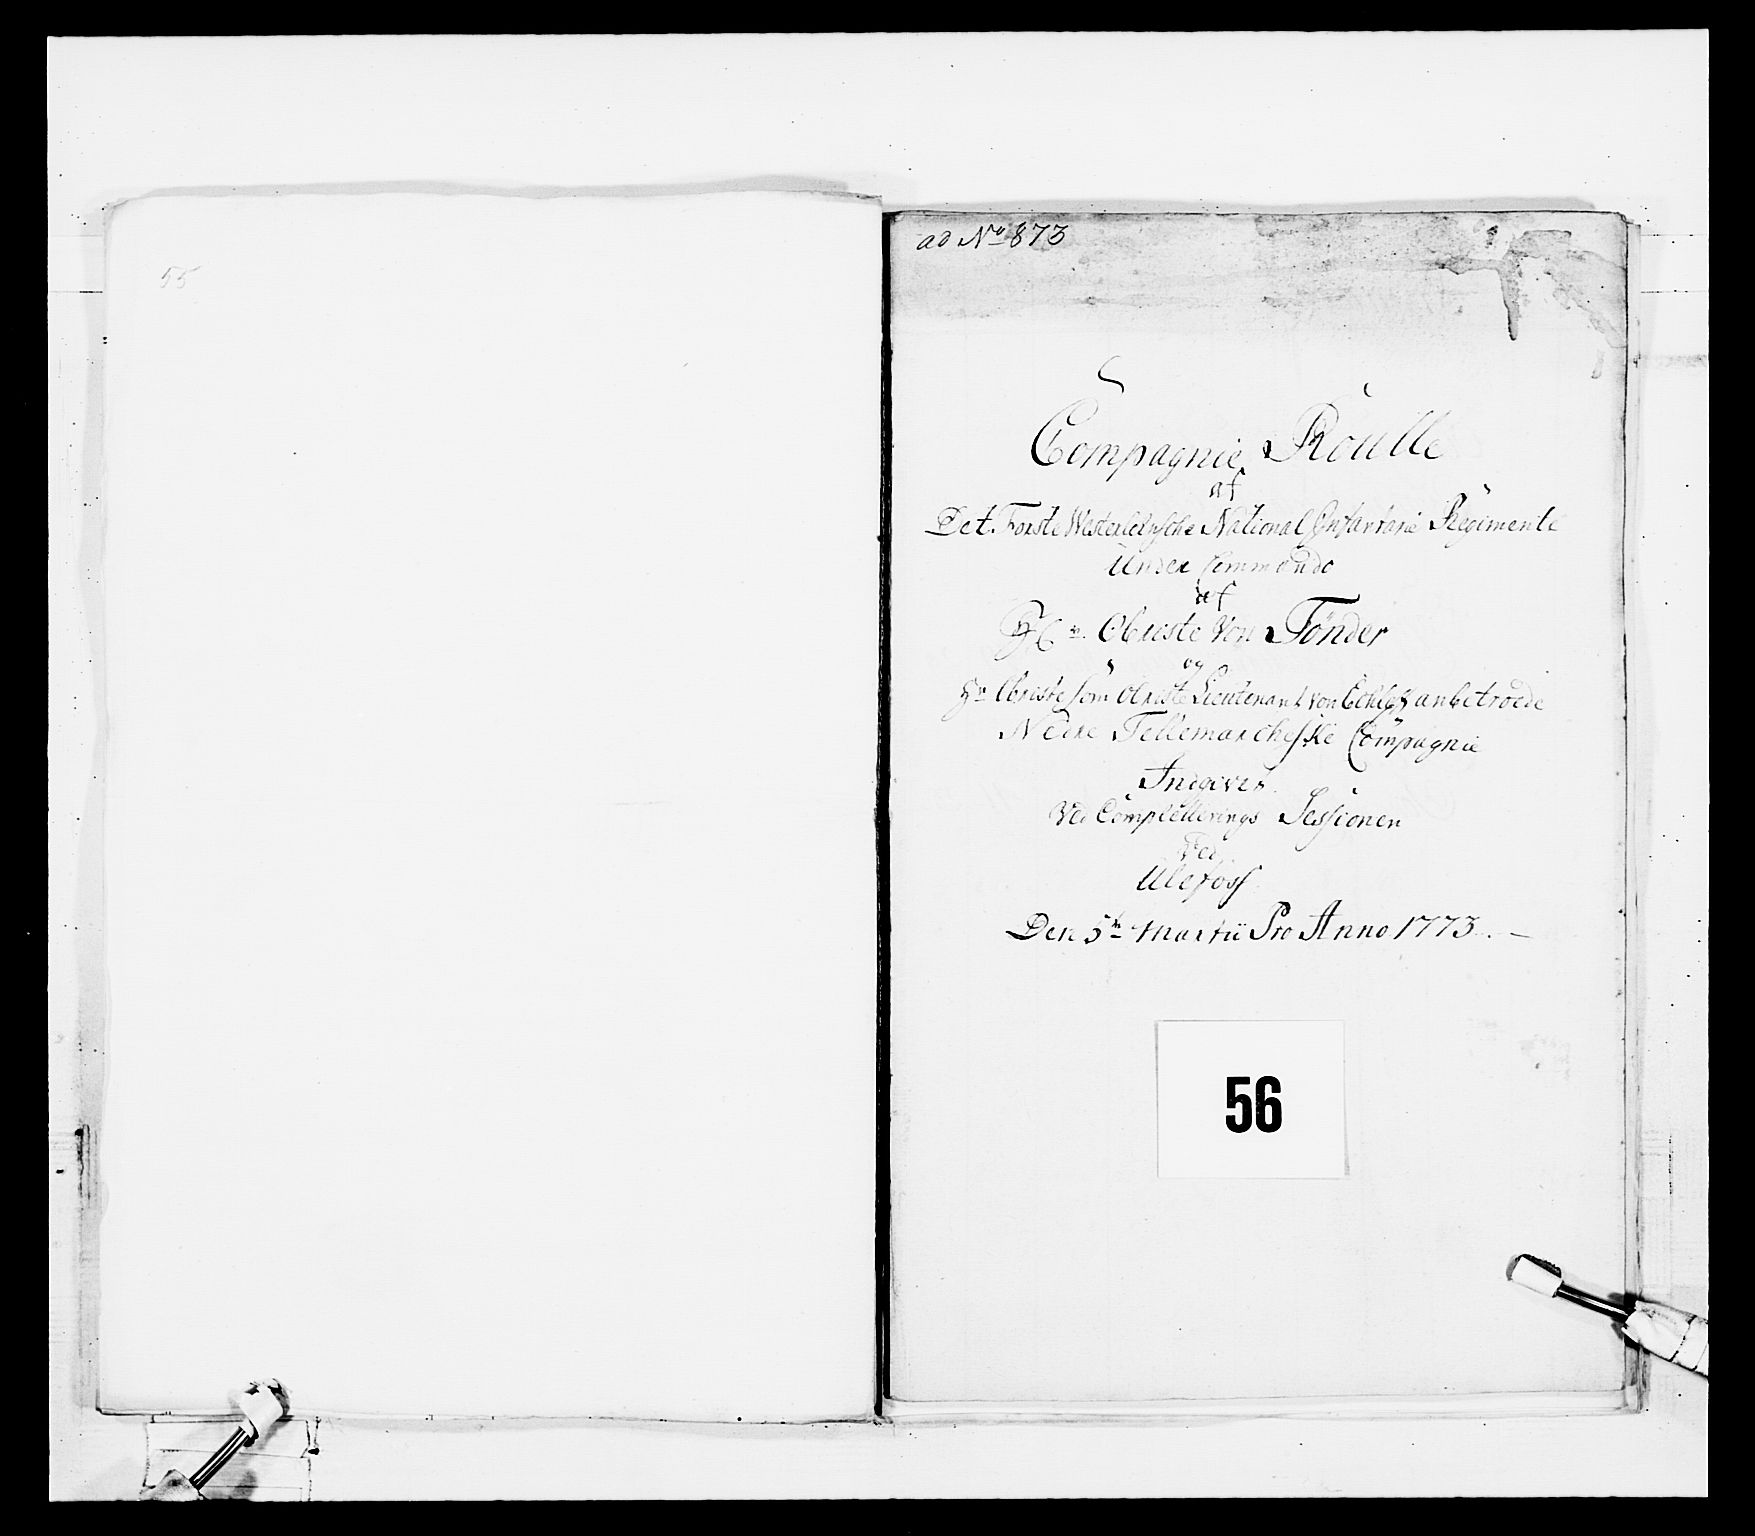 55
ad No 873
Compagnie Roulle
af
Det Første Westerlehnsche National Infanterie Regimente
Under Commando
af
Hr. Obriste Von Tønder
og
Hr Obriste som Obriste Lieutenant von anbetroede
Nedre Tellemarchesske Compagnie
Indgivet
Ved Completterings Sessionen
Ved
Ulefoss
Den 5te Martii Pro Anno 1773. —
56